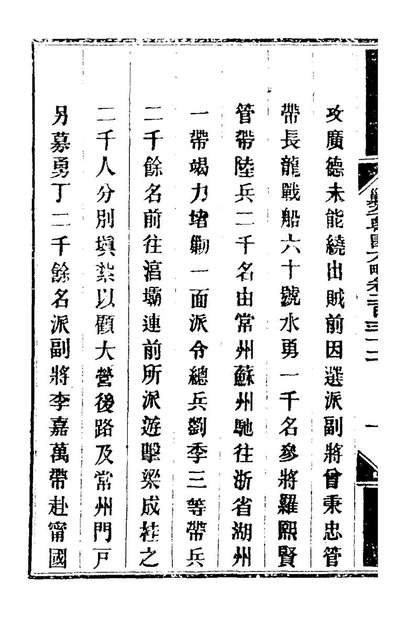 攻廣德未能繞出賊前因選派副將曾秉忠管
帶長龍戰船六十號水勇一千名參將羅熙賢
管帶陸兵二千名由常州蘇州馳往浙省湖州
一帶竭力堵勦一面派令總兵劉季三等帶兵
二千餘名前往漍壩連前所派遊擊梁成桂之
二千人分別塡紮以顧大營後路及常州門戸
另募勇丁二千餘名派副將李嘉萬帶赴甯國